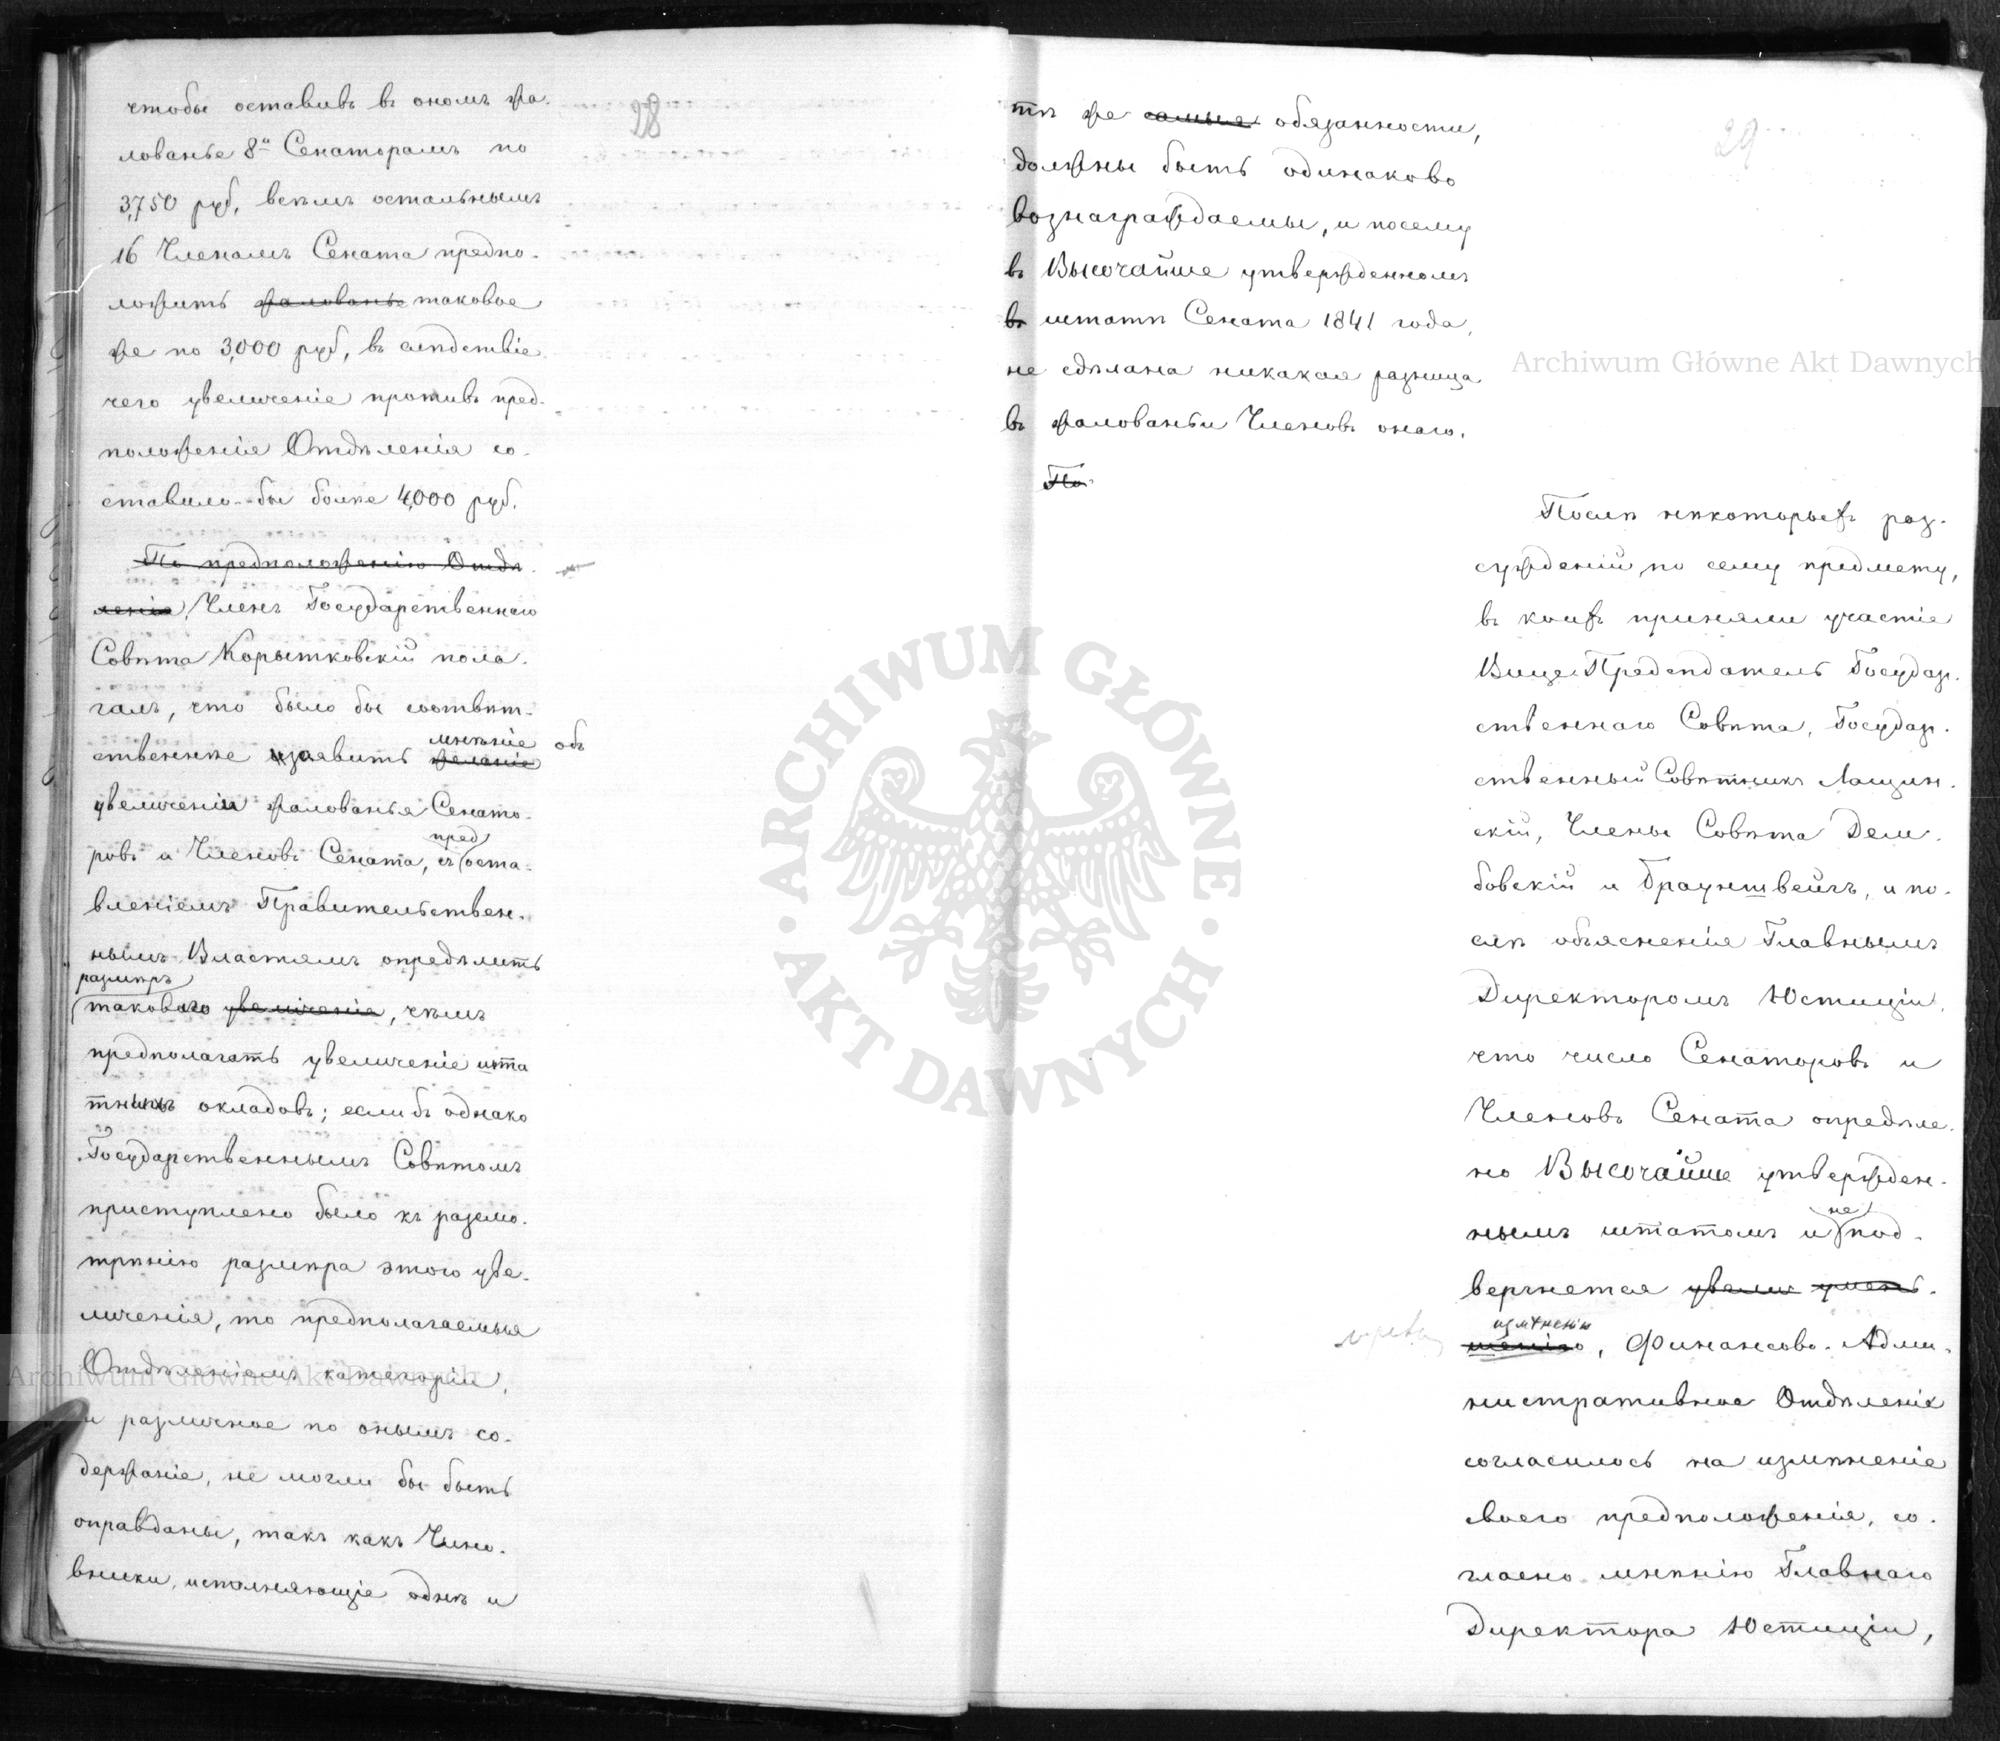 28
чтобы оставивъ въ ономъ жа-
лованье 8и Сенаторамъ по
3,750 руб., всѣмъ остальнымъ
16 Членамъ Сената предпо-
ложить жалованье таковое
же по 3,000 руб., въ слѣдствіе
чего увеличеніе противъ пред-
положенія Отдѣленія со-
ставило-бы болѣе 4,000 руб.
По предположенію Отдѣ-
ленія, Членъ Государственнаго
Совѣта Корытковскій пола-
галъ, что было бы соотвѣт-
мнѣніе объ
ственнѣе изъявить желаніе
увеличеніи жалованья Сенато-
пред
ровъ и Членовъ Сената, съ оста-
вленіемъ Правительствен-
нымъ Властямъ опредѣлить
размѣръ
таковаго увеличенія, чѣмъ
предполагать увеличеніе шта
тныхъ окладовъ; еслибъ однако
Государственнымъ Совѣтомъ
приступлено было къ разсмо-
трѣнію размѣра этого уве-
личенія, то предполагаемыя
Отдѣленіемъ категоріи,
и различное по онымъ со-
держаніе, не могли бы быть
оправданы, такъ какъ Чино-
вники, исполняющіе однѣ и
29
тѣ же самыя обязанности,
должны быть одинаково
вознаграждаемы, и посему
въ Высочайше утвержденномъ
въ штатѣ Сената 1841 года,
не сдѣлана никакая разница
въ жалованьи Членовъ онаго.
По
Послѣ нѣкоторыхъ раз-
сужденій по сему предмету,
въ коихъ приняли участіе
Вице-Предсѣдатель Государ-
ственнаго Совѣта, Государ-
ственный Совѣтникъ Лащин-
скій, Члены Совѣта Дем-
бовскій и Брауншвейгъ, и по-
слѣ объясненія Главнымъ
Директоромъ Юстиціи,
что число Сенаторовъ и
Членовъ Сената опредѣле-
но Высочайше утвержден-
не
нымъ штатомъ и под-
вергнется увелич умень-
измѣненію
шенію, Финансово-Адми-
нистративное Отдѣленіе
согласилось на измѣненіе
своего предположенія, со-
гласно мнѣнію Главнаго
Директора Юстиціи,
Archiwum Główne Akt Dawnych
Archiwum Główne Akt Dawnych
ARCHIWUM GŁÓWNE · AKT DAWNYCH ·